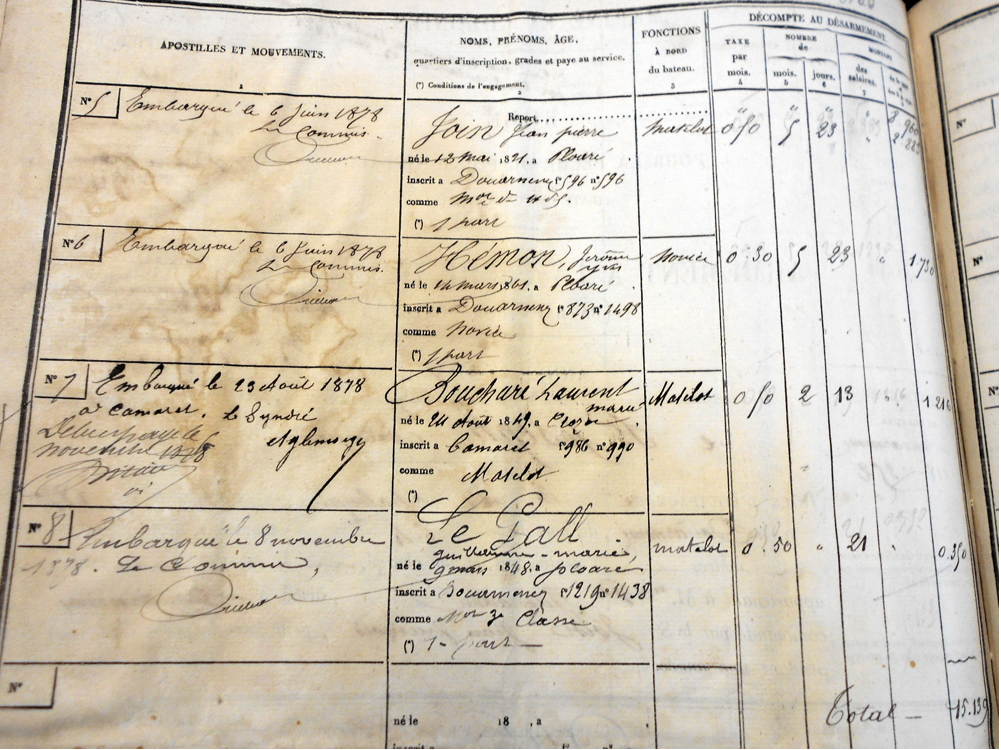 DÉCOMPTE AU DÉSARMEMENT.
APOSTILLES ET MOUVEMENTS.
NOMS, PRÉNOMS, ÂGE,
quartiers d'inscription, grades et paye au service.
(*) Conditions de l'engagement.
FONCTIONS
À BORD
du bateau.
TAXE
par
mois.
NOMBRE
de
mois.
jours.
des
salaires.
Report
N° 5
Embarqué le 6 Juin 1878
Le Commis.
Join Jean pierre
né le 12 mai 1821. a Ploaré
inscrit a Douarnenez f° 596 n° 596
comme
(*) 1 part
Matelot
0 50 5 23
N° 6
Embarqué le 6 Juin 1878
Le Commis.
Hémon, Jérôme
Yves
né le 14 mars 1861. a Ploaré
inscrit a Douarnenez f° 873 n° 1498
comme Novice
(*) 1 part
Novice 0.30 5 23 " 1.730
N° 7
Embarqué le 23 Août 1878
à Camaret. Le Syndic
Débarqué le
novembre 1878
Boucharé Laurent
marie
né le 24 Août 1849. a Crozon
inscrit a Camaret f° 986 n° 990
comme Matelot
(*)
Matelot 0 50 2 13 " 1.216
N° 8
Embarqué le 8 novembre
1878. Le Commis,
Le Gall
guillaume - marie,
né le 9 mars 1848. a Ploaré
inscrit a Douarnenez f° 1219 n° 1438
comme Mot 3e Classe
(*) 1 - part -
matelot 0.50 " 21 " 0.350
N°
né le 18 , a
inscrit a
Total - 15.139